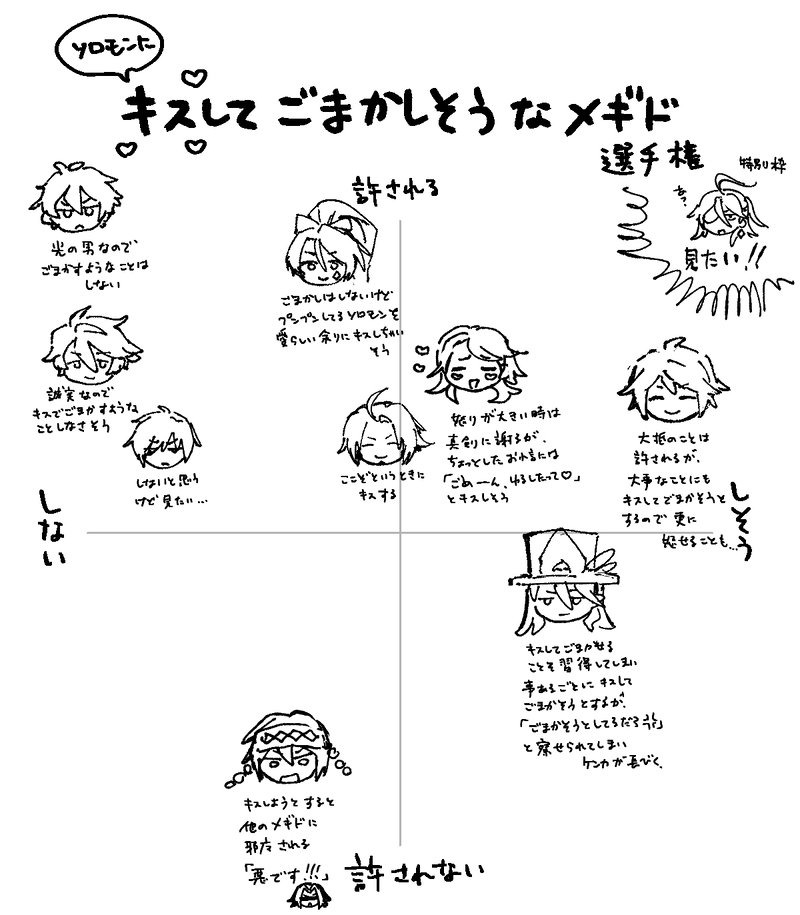 ソロモンに
キスして ごまかしそう な メギド
選手権
特別枠
許される
え?
見たい!!
光の男なので
ごまかすような ことは
しない
ごまかしはしないけど
プンプンしてる ソロモンを
愛らしい余りに キスしちゃい
そう
誠実なので
キスでごまかすような
ことしなさそう
しないと思う
けど見たい…
ここぞというときに
キスする
怒りが大きい時は
真剣に謝るが、
ちょっとしたお小言には
「ごめーん、ゆるしたって♡」
とキスしそう
大抵のことは
許されるが、
大事なことにも
キスしてごまかそうと
するので 更に
怒せることも…
しない
しそう
キスしてごまかせる
ことを 習得してしまい
事あるごとに キスして
ごまかそうとするが、
「ごまかそうとしてるだろ
と察せられてしまい
ケンカが長びく。
キスしようと すると
他の メギドに
邪魔 される
「悪です!!!」
許されない